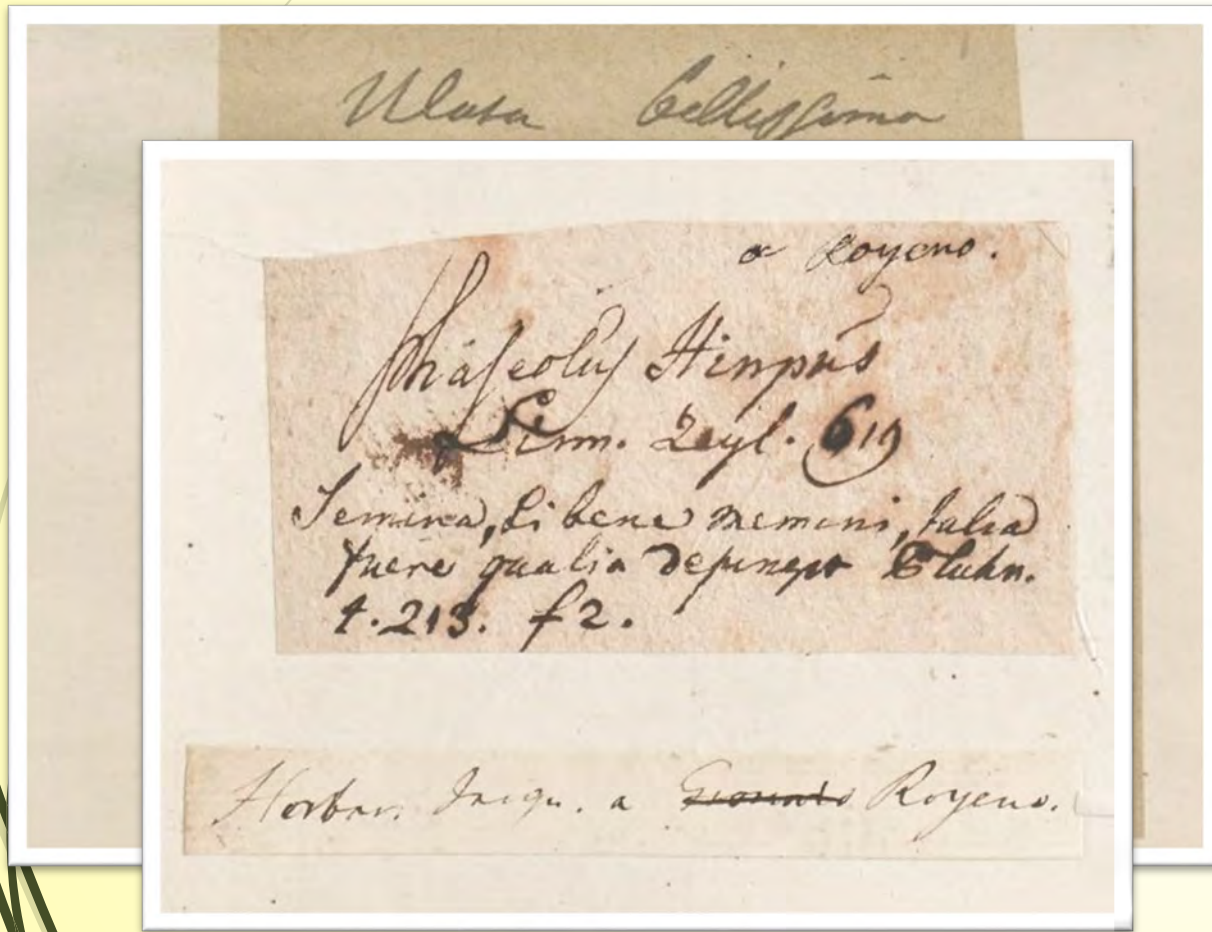 bellissima
a Royeno.
Phaseolus
Linn. Zeyl. 619
Semina, si bene memini, talia
fuere qualia depinget
t. 213. f 2.
Herbar. Jacqu. a Royeno.